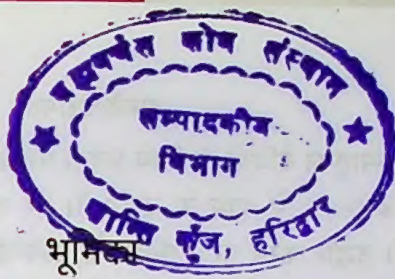 ब्रह्मवर्चस शोध संस्थान
सम्पादकीय
विभाग
शान्ति कुंज, हरिद्वार
भूमिका